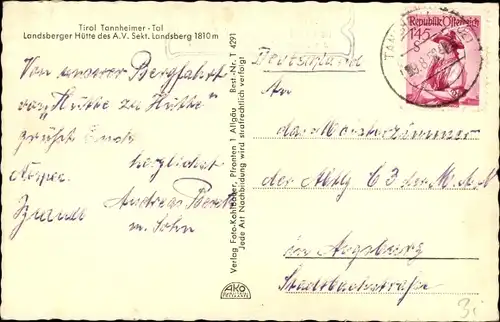 Tirol Tannheimer-Tal
Landsberger Hütte des A.V. Sekt. Landsberg 1810 m
Von unserer Bergfahrt
von "Hütte zu Hütte"
grüßt Euch
herzlichst
Andreas
m. Sohn
Verlag Foto-Kohlbauer, Pfronten i. Allgäu Best.-Nr. T 4291
Jede Art Nachbildung wird strafrechtlich verfolgt
AKO
Deutschland
An
das Meisterzimmer
der Abtlg C3 der M.A.N
in Augsburg
Stadtbachstraße
Republik Österreich
1.45
S